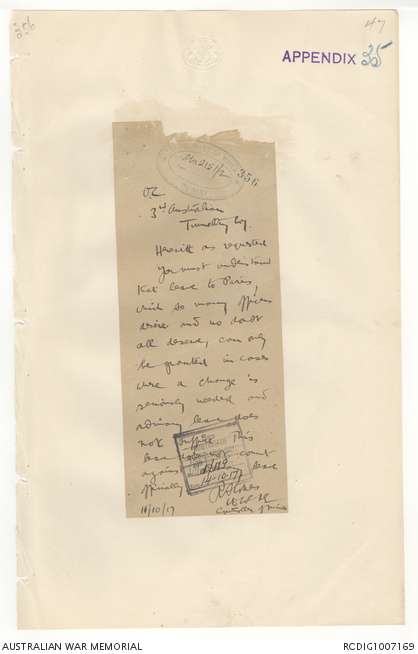 47
APPENDIX 35
356
O.C.
3rd Australian
Tunnelling Coy.
Herewith as requested
You must understand
that leave to Paris,
which so many officers
desire and no doubt
all deserve, can only
be granted in cases
where a change is
seriously needed and
ordinary leave does
not suffice. This
leave does not count
against leave
officially
14.10.17
11/10/17
Controller of Mines
AUSTRALIAN WAR MEMORIAL
RCDIG1007169